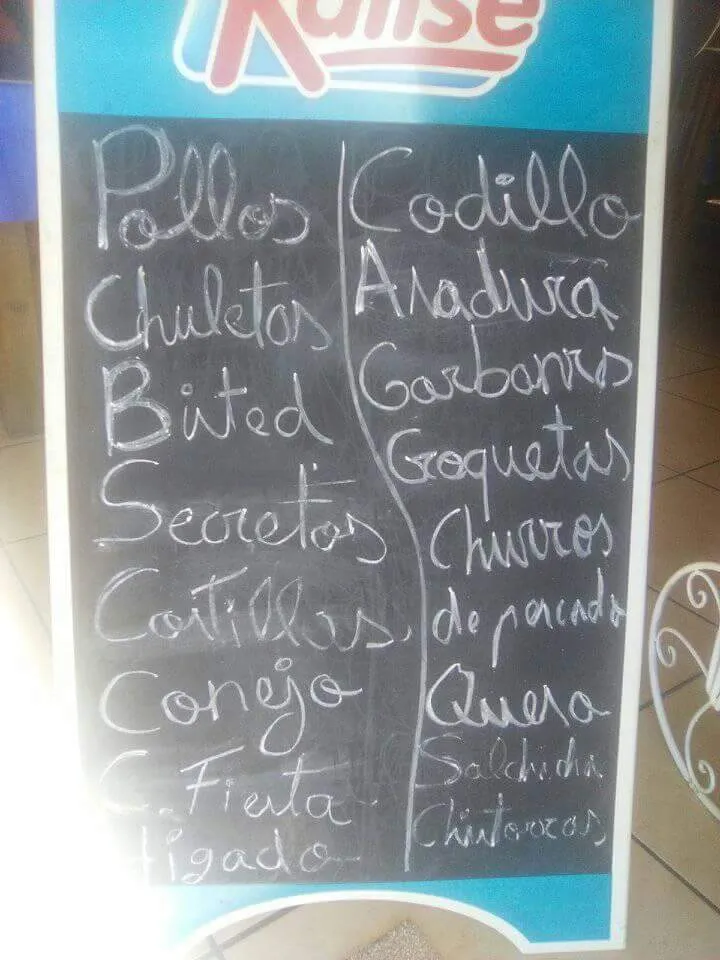 Kalise
Pollos
Chuletas
Bisted
Secretos
Costillas
Conejo
C. Fiesta
Higado
Codillo
Asadura
Garbanzos
Croquetas
Churros
de pescado
Queso
Salchicha
Chistorras